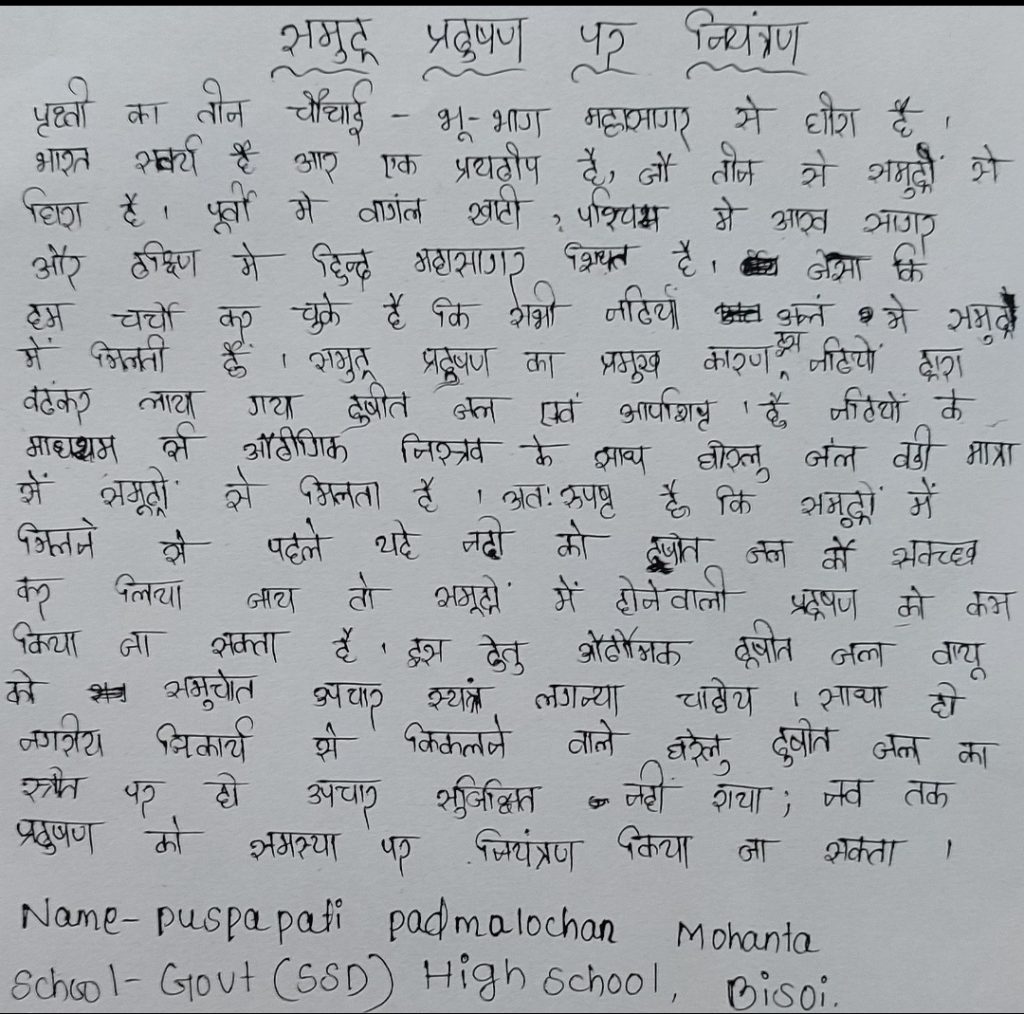 समुद्र प्रदुषण पर नियंत्रण
पृथ्ती का तीन चौचाई - भू-भाग महासागर से घीरा है ।
भारत स्वयं है आर एक प्रयद्वीप है, जो तीन से समुद्रों से
घिरा है । पूर्वी मे वागंल खाटी , पश्चिम मे आरव सागर
और दक्षिण मे हिन्द महासागर स्थित है । जेसा कि
हम चर्चा कर चुके है कि सभी नदियाँ अन्तं मे समुद्रों
में मिलती हैं । समुद्र प्रदुषण का प्रमुख कारण इस नदियों द्वारा
वहंकर लाया गया दुषीत जल एवं आपशिष्ट । है नदियों के
माध्यम से औद्योगिक निस्त्रव के साथ घोरेलु जंल वडी मात्रा
में समूद्रों से मिलता है । अतः स्पष्ट है कि समुद्रों में
मिलने से पहले यदि नदी को दुषीत जल को सवच्छ
कर लिया जाय तो समूद्रों में होनेवाली प्रदुषण को कम
किया जा सकता है । इस हेतु दूषीत जल वायू
को समुचीत उपचार स्यंत्रं लगान्या चाहेय । साथा ही
नगरीय निकार्य से किकलने वाले घरेलु दुषीत जल का
स्त्रोत पर ही उपचार सुनिश्चित नहीं राया ; जब तक
प्रदुषण को समस्या पर नियंत्रण किया जा सकता ।
Name- puspapati padmalochan Mohanta
School- Govt (SSD) High school, Bisoi.